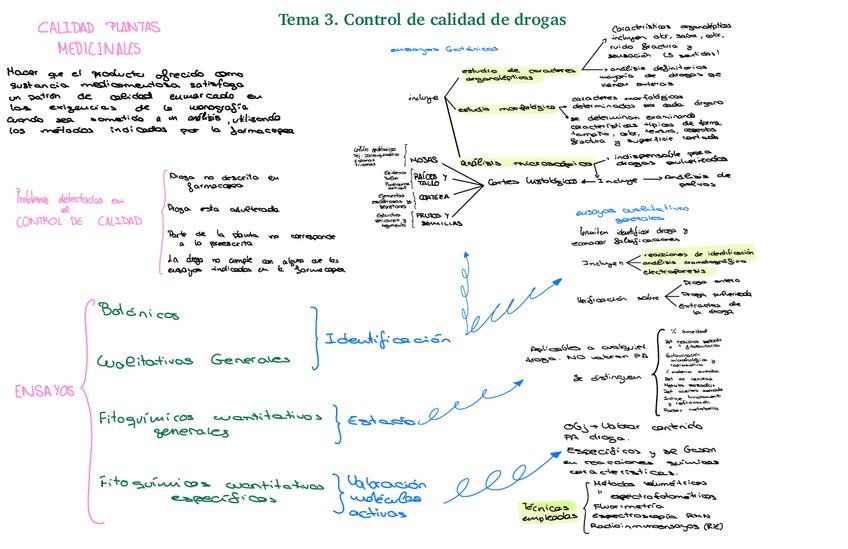 Tema 3. Control de calidad de drogas
CALIDAD PLANTAS
MEDICINALES
Hacer que el producto ofrecido como
sustancia medicamentosa satisfaga
un patrón de calidad enmarcado en
las exigencias de la monografía
cuando sea sometido a un análisis, utilizando
los métodos indicados por la farmacopea
Problemas detectados en
el
CONTROL DE CALIDAD
Droga no descrita en
farmacopea
Droga esta adulterada
Parte de la planta no corresponde
a la preescrita
La droga no cumple con alguno de los
ensayos indicados en la farmacopea
ENSAYOS
Botánicos
Cualitativos Generales
Identificación
Fitoquímicos cuantitativos
generales
Estado
Fitoquímicos cuantitativos
específicos
Valoración
moléculas
activas
ensayos Botánicos
incluye
estudio de caracteres
organolépticos
Características organolépticas
incluyen olor, sabor, color,
ruido fractura y
sensación (5 sentidos)
análisis definitorios
mayoría de drogas que
vienen enteras
estudio morfológico
caracteres morfológicos
determinados pa cada órgano
se determinan examinando
características típicas de forma,
tamaño, color, textura, aspectos
fractura y superficie cortada
análisis microscópico
indispensable para
drogas pulverizadas
Incluye
análisis de
polvos
Cortes histológicos
HOJAS
RAÍCES Y
TALLO
CORTEZA
FRUTOS Y
SEMILLAS
ensayos cualitativos
generales
Permiten identificar droga y
reconocer falsificaciones
Incluyen
reacciones de identificación
análisis cromatográfico
electroforesis
Verificación sobre
Droga entera
Droga pulverizada
Extractos de
la droga
Aplicables a cualquier
droga. NO valoran PA
Se distinguen
% humedad
OBJ → Valorar contenido
PA droga.
Específicos y se basan
en reacciones químicas
características.
Técnicas
empleadas
Métodos volumétricos
" espectrofotométricos
Fluorimetría
Espectroscopía RMN
Radioinmunoensayos (RIE)